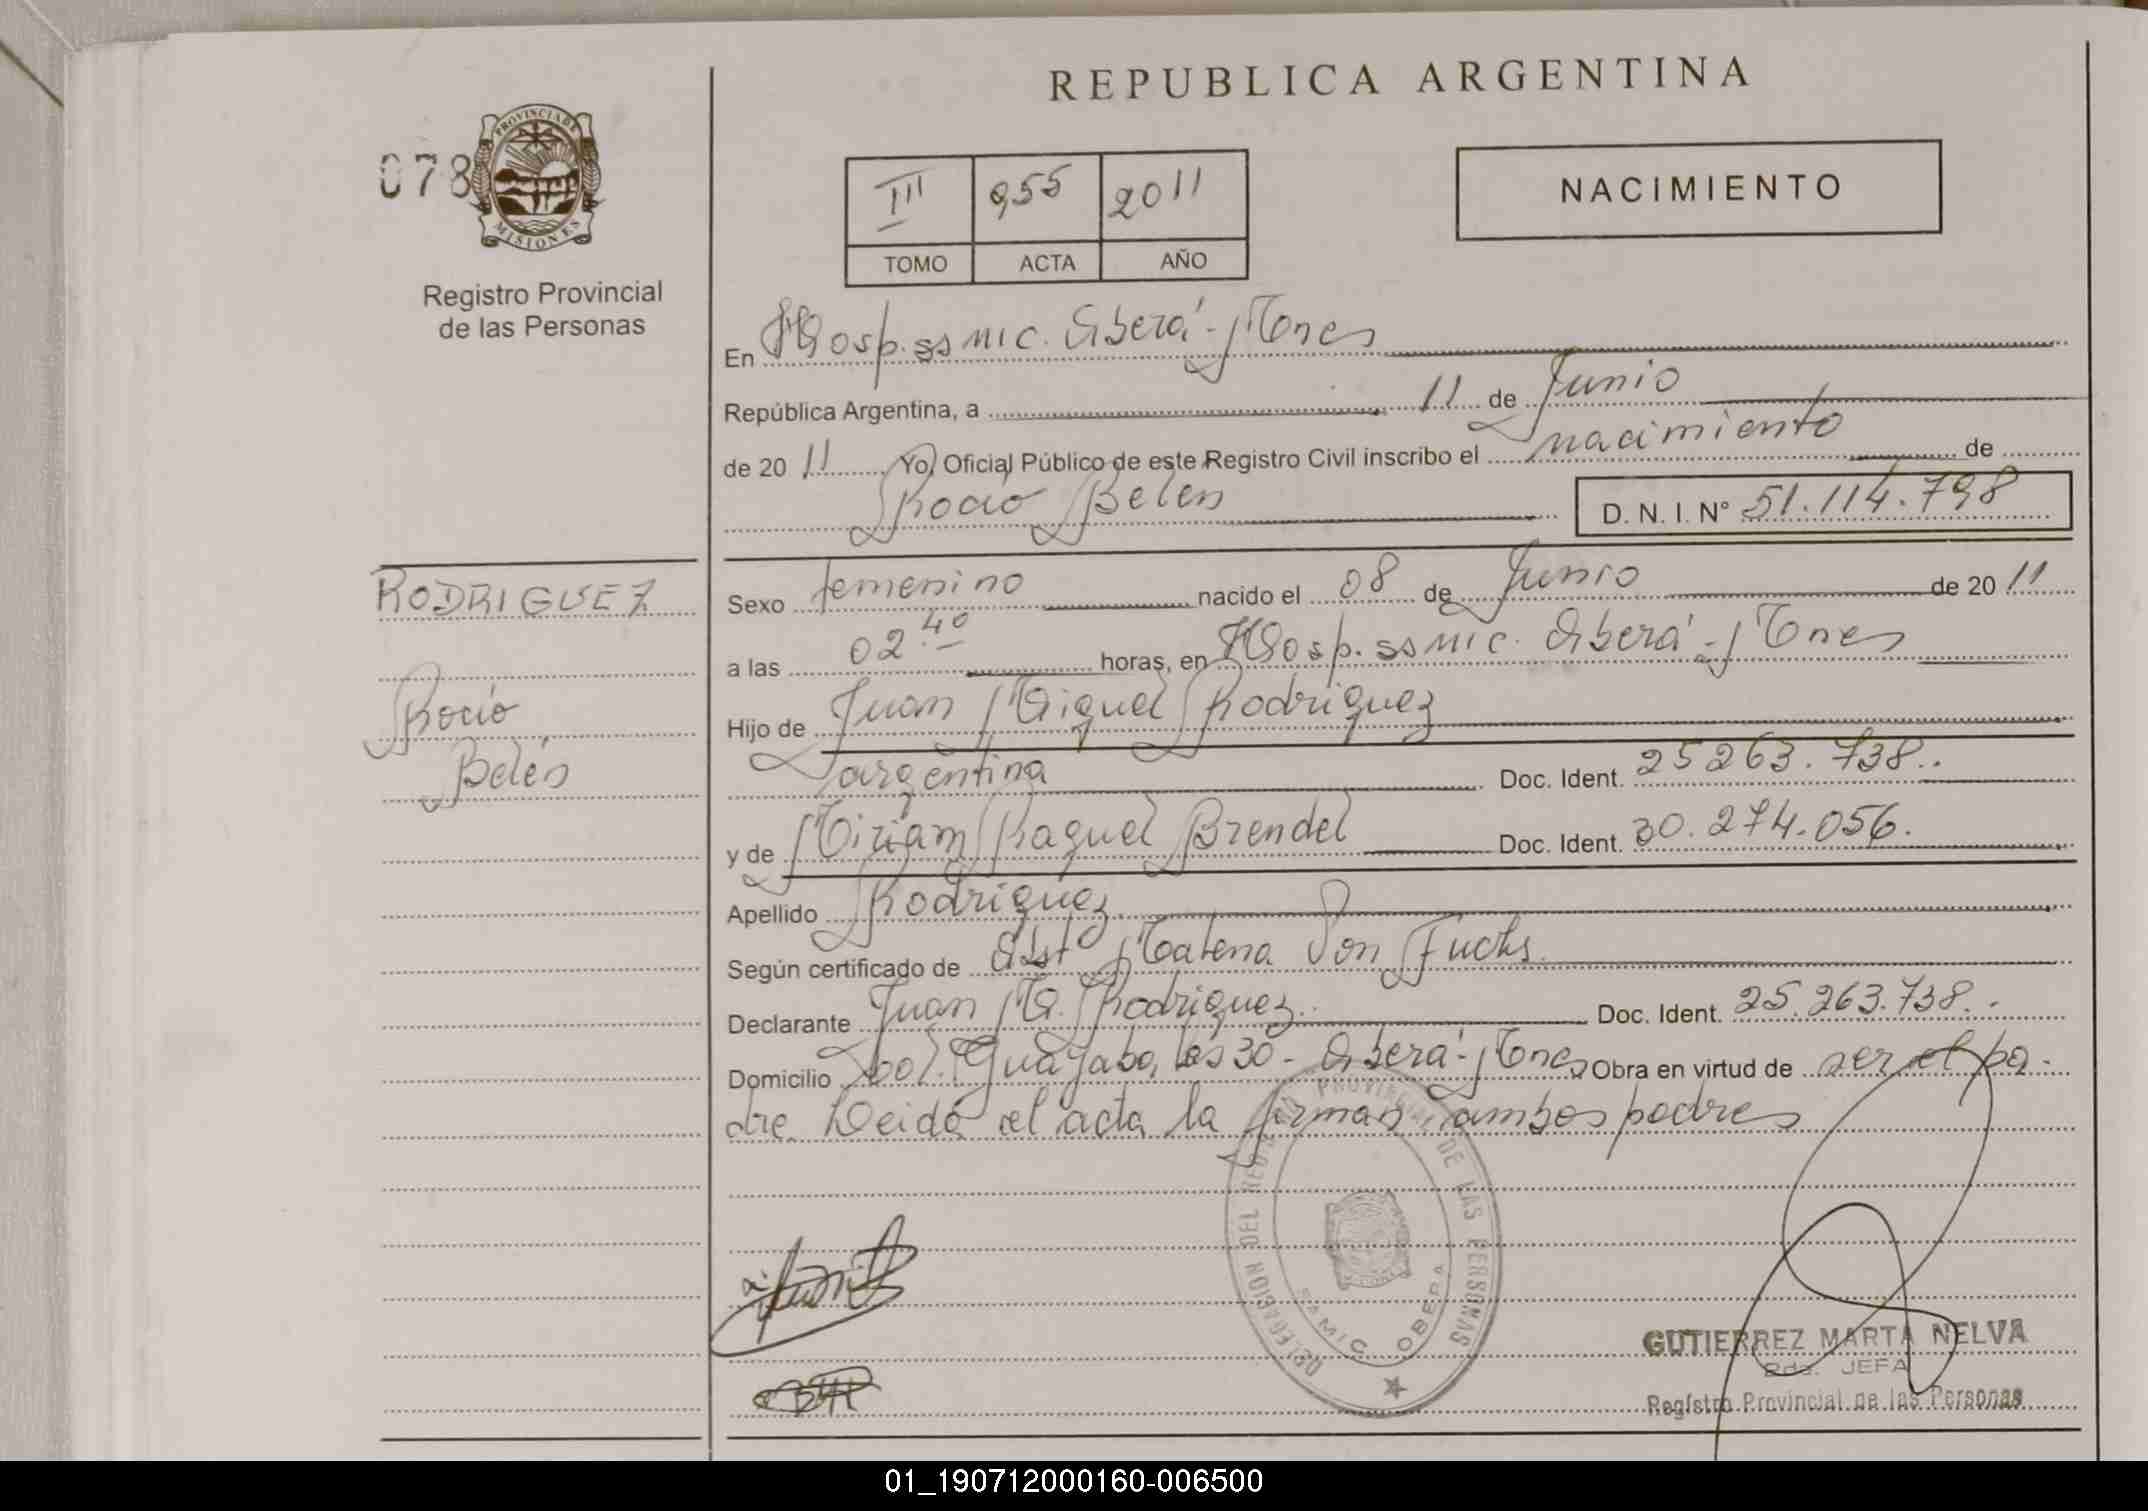 REPUBLICA ARGENTINA
078
PROVINCIA DE
MISIONES
Registro Provincial
de las Personas
III 955 2011
TOMO ACTA AÑO
NACIMIENTO
En Hosp. ss mic. Oberá - Mnes
República Argentina, a 11 de Junio
de 20 11 Yo, Oficial Público de este Registro Civil inscribo el nacimiento de
Rocio Belén D. N. I. N° 51.114.798
RODRIGUEZ
Rocio
Belén
Sexo femenino nacido el 08 de Junio de 20 11
a las 02 40 horas, en Hosp. ss mic. Oberá - Mnes
Hijo de Juan Miguel Rodriguez
argentina Doc. Ident. 25263.738.
y de Miriam Raquel Brendel Doc. Ident. 30.274.056.
Apellido Rodriguez
Según certificado de Obst Malena Von Fuchs.
Declarante Juan M. Rodriguez. Doc. Ident. 25.263.738.
Domicilio Guayabo, 30 - Oberá - Mnes Obra en virtud de ser el pa-
dre. Leida el acta la firman, ambos padres
DELEGACION DEL REGISTRO PROVINCIAL DE LAS PERSONAS
SAMIC OBERA
GUTIERREZ MARTA NELVA
JEFA
Registro Provincial de las Personas
01_190712000160-006500